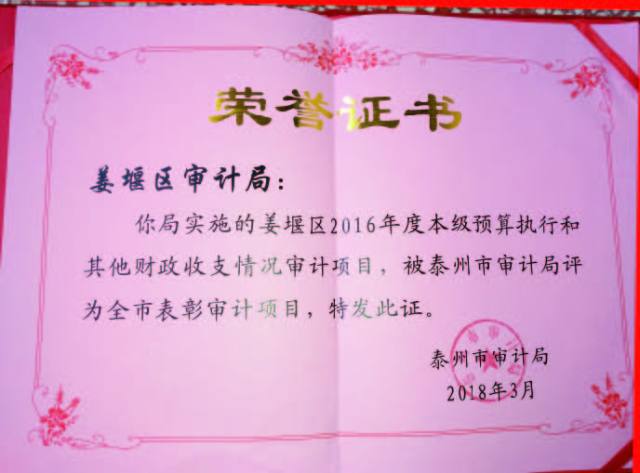 荣誉证书
姜堰区审计局：
你局实施的姜堰区2016年度本级预算执行和
其他财政收支情况审计项目，被泰州市审计局评
为全市表彰审计项目，特发此证。
泰州市审计局
2018年3月